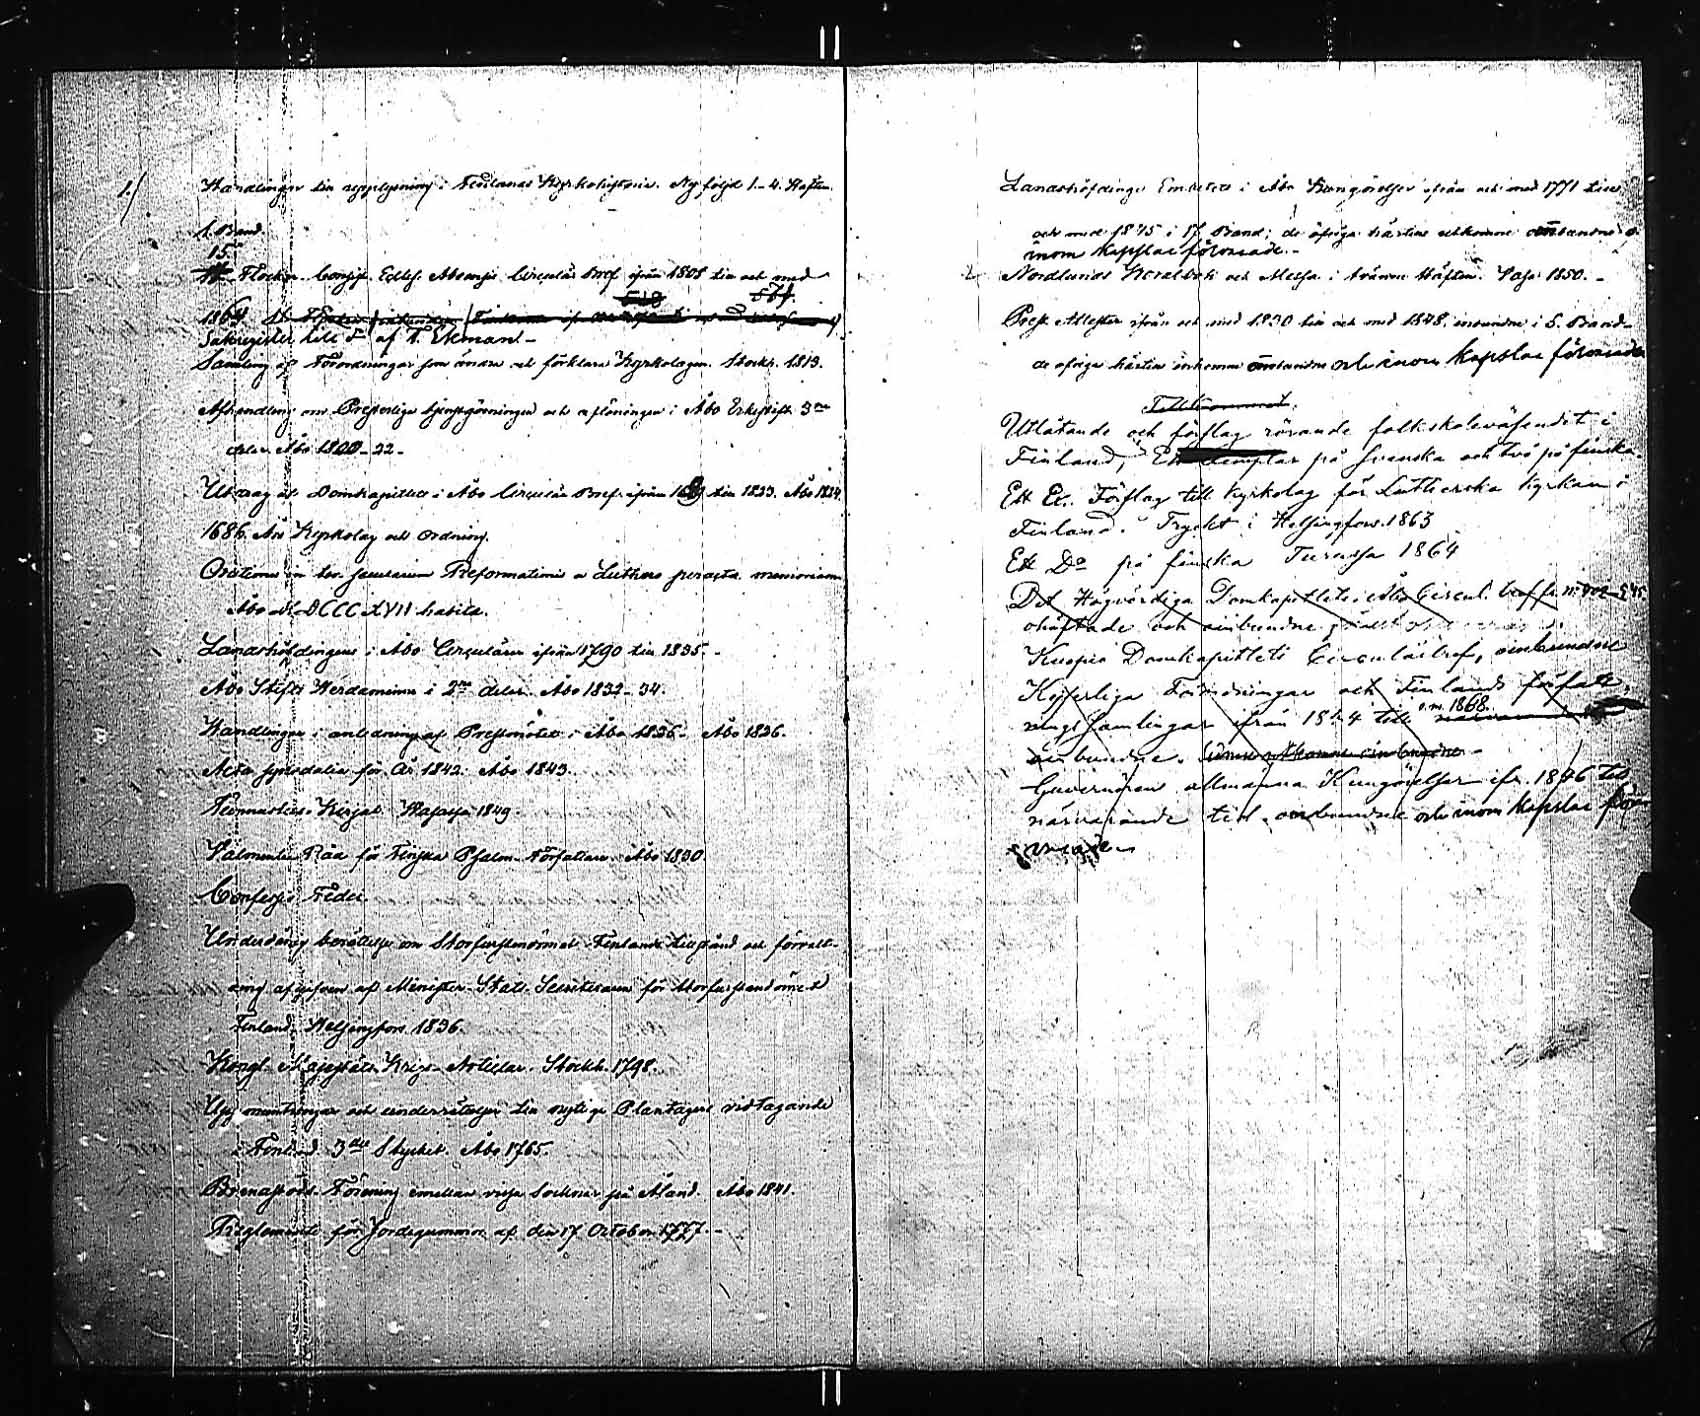 1.) Handlingar till upplysning i Finlands Kyrkohistoria. Ny följd 1-4. Häften.
1. Band.
15
Flockar Consist. Eccles. Aboensis Circulär Bref ifrån 1808 till och med
564.
1864
Sakregister till D:o af F. Ekman.
Samling af Förordningar som ändra och förklara Kyrkolagen. Stockh. 1813.
Afhandling om Presterliga tjenstgöringen och aflöningen i Åbo Erkestift. 3ne
delar Åbo 1820-22.
Utdrag af Domkapitlets i Åbo Circulär Bref ifrån till 1833. Åbo 1834.
1686 Års Kyrkolag och Ordning.
Orationes in ter. secularem Reformationis a Luthero peracta memoriam
Åbo MDCCCXVII habita.
Landshöfdingens i Åbo Circulärer ifrån 1790 till 1835.
Åbo Stifts Herdaminne i 2ne delar. Åbo 1832-34.
Handlingar i anledning af Prestmötet i Åbo 1836. Åbo 1836.
Acta synodalia för År 1842. Åbo 1843.
Kirjat Wasassa 1849.
Välmenta Råd för Finska Psalm-Författare Åbo 1830.
Confessio Fidei.
Underdånig berättelse om Storfurstendömet Finlands tillstånd och förvalt-
ning afgifven af Minister-Stats-Secreteraren för Storfurstendömet
Finland. Helsingfors 1836.
Kongl. Majestäts Krigs-Articlar. Stockh. 1798.
Uppmuntringar och underrättelser till nyttige Plantagers vidtagande
i Finland 3die Stycket. Åbo 1765.
Brandstods Förening emellan vissa Socknar på Åland. Åbo 1841.
Reglemente för Jordegummor af den 17 October 1777
Landshöfdinge Embetets i Åbo Kungörelser ifrån och med 1771 till
och med 1845 i 17 Band; de öfriga härtills utkomne oinbundne o
inom kapslar förvarade.
Nordlunds Koralbok och Messa i tvänne Häften. Vasa 1850.
Prest Attester ifrån och med 1830 till och med 1848, inbundne i 5. Band
de öfriga härtills inkomne oinbundne och inom kapslar förvarade
Utlåtande och förslag rörande folkskoleväsendet i
Finland, Ett exemplar på Svenska och två på finska.
Ett Ex. Förslag till Kyrkolag för Lutherska kyrkan i
Finland. Tryckt i Helsingfors 1863
Ett D:o på finska Turussa 1864
Det Högvördiga Domkapitlets i Åbo Circul. bref fr. n:o
ohäftade och oinbundne
Kuopio Domkapitlets Circulärbref, oinbundne
Kejserliga Förordningar och Finlands författ-
ningssamlingar ifrån 1844 till o. m. 1868.
oinbundne.
Guvernören allmänna Kungörelser ifr. 1846 till
närvarande tid oinbundne och inom kapslar för-
varade